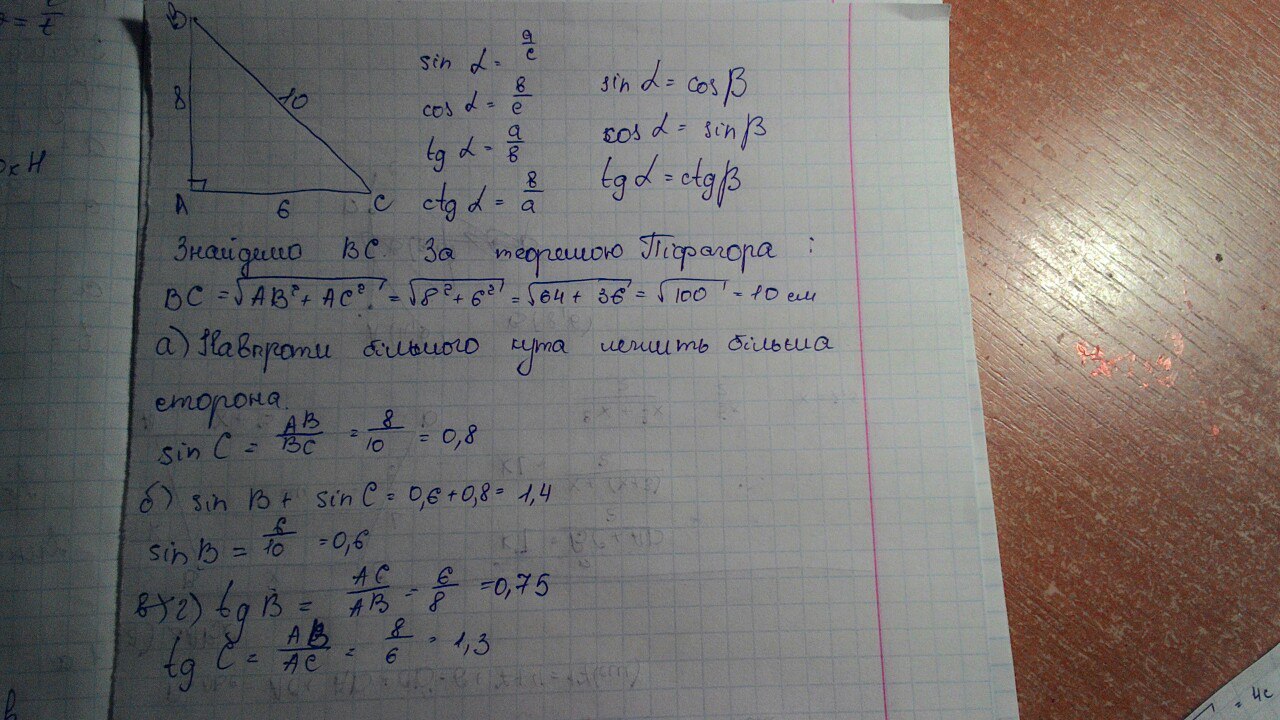 B
8
10
A
6
C
sin α = a/c
cos α = в/c
tg α = a/в
ctg α = в/a
sin α = cos β
cos α = sin β
tg α = ctg β
Знайдемо BC. За теоремою Піфагора :
BC = √AB² + AC² = √8² + 6² = √64 + 36 = √100 = 10 см
а) Навпроти більшого кута лежить більша
сторона.
sin C = AB/BC = 8/10 = 0,8
б) sin B + sin C = 0,6 + 0,8 = 1,4
sin B = 6/10 = 0,6
в) г) tg B = AC/AB = 6/8 = 0,75
tg C = AB/AC = 8/6 = 1,3
= 4c